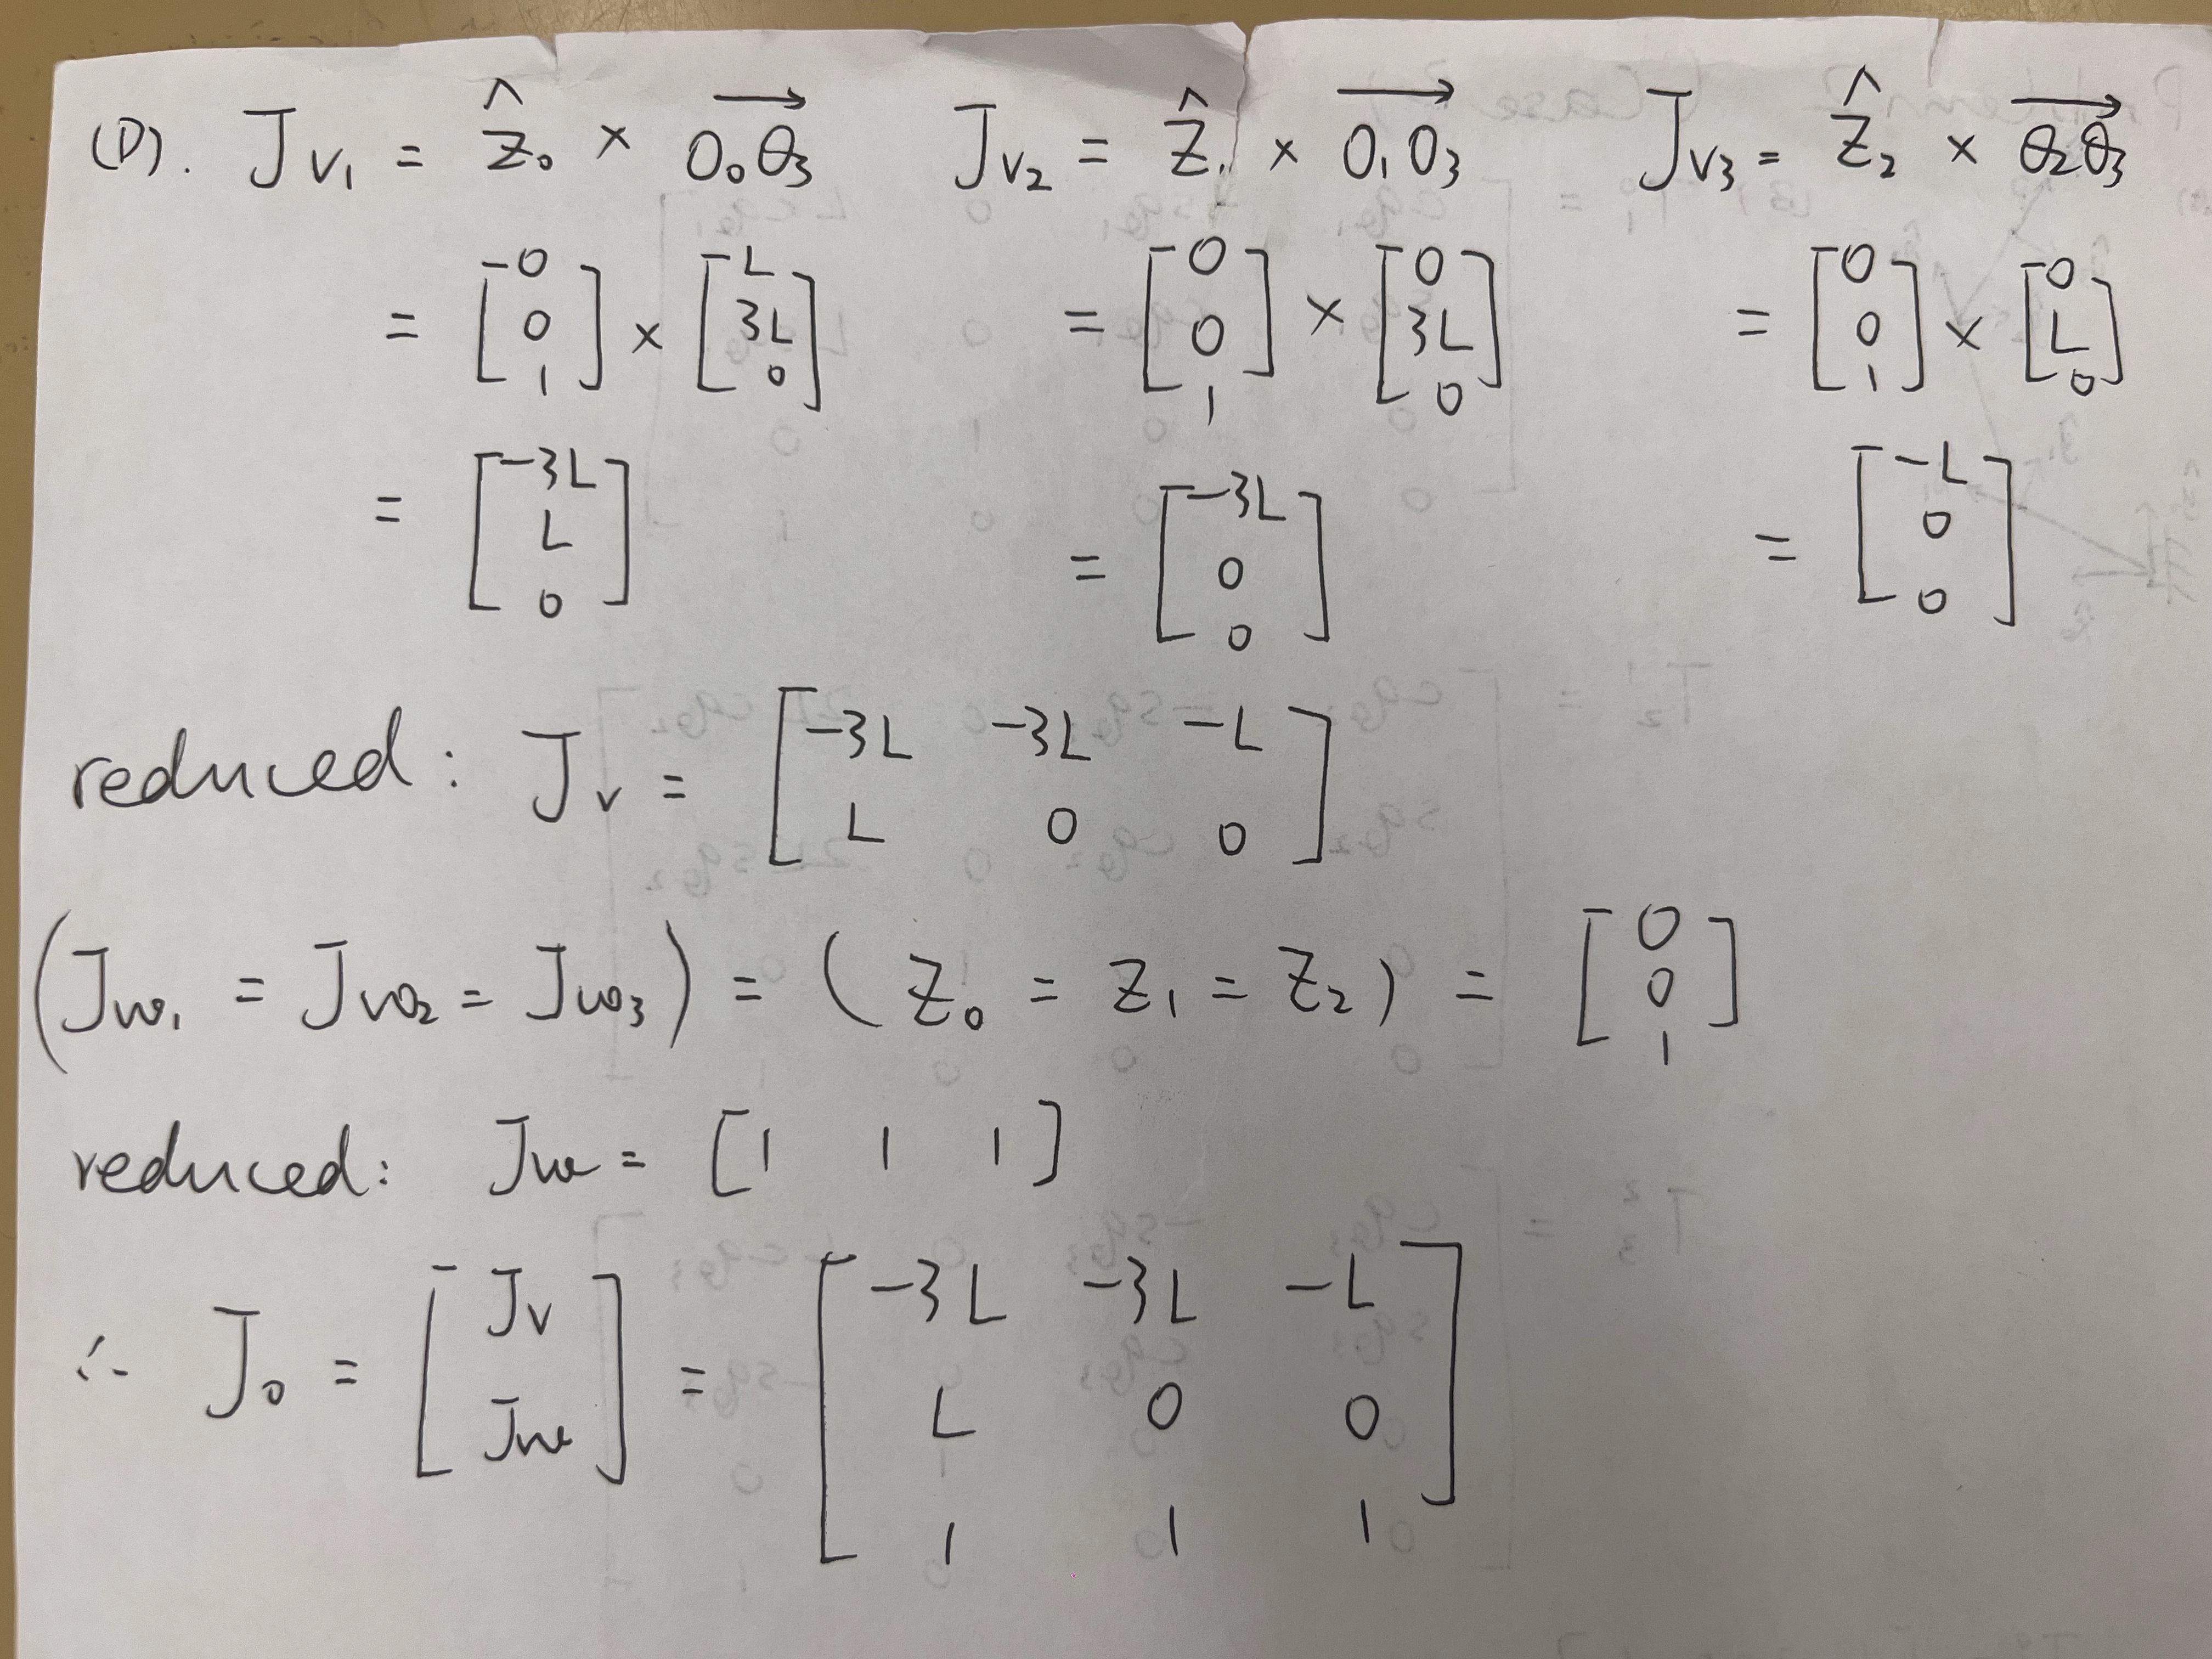 (D). J_{v_1} = \hat{z}_0 × \overrightarrow{O_0O_3}   J_{v_2} = \hat{z}_1 × \overrightarrow{O_1O_3}   J_{v_3} = \hat{z}_2 × \overrightarrow{O_2O_3}
= [0; 0; 1] × [L; 3L; 0]   = [0; 0; 1] × [0; 3L; 0]   = [0; 0; 1] × [0; L; 0]
= [-3L; L; 0]   = [-3L; 0; 0]   = [-L; 0; 0]
reduced: J_v = [-3L -3L -L; L 0 0]
(J_{ω_1} = J_{ω_2} = J_{ω_3}) = (z_0 = z_1 = z_2) = [0; 0; 1]
reduced: J_ω = [1 1 1]
∴ J_0 = [J_v; J_ω] = [-3L -3L -L; L 0 0; 1 1 1]